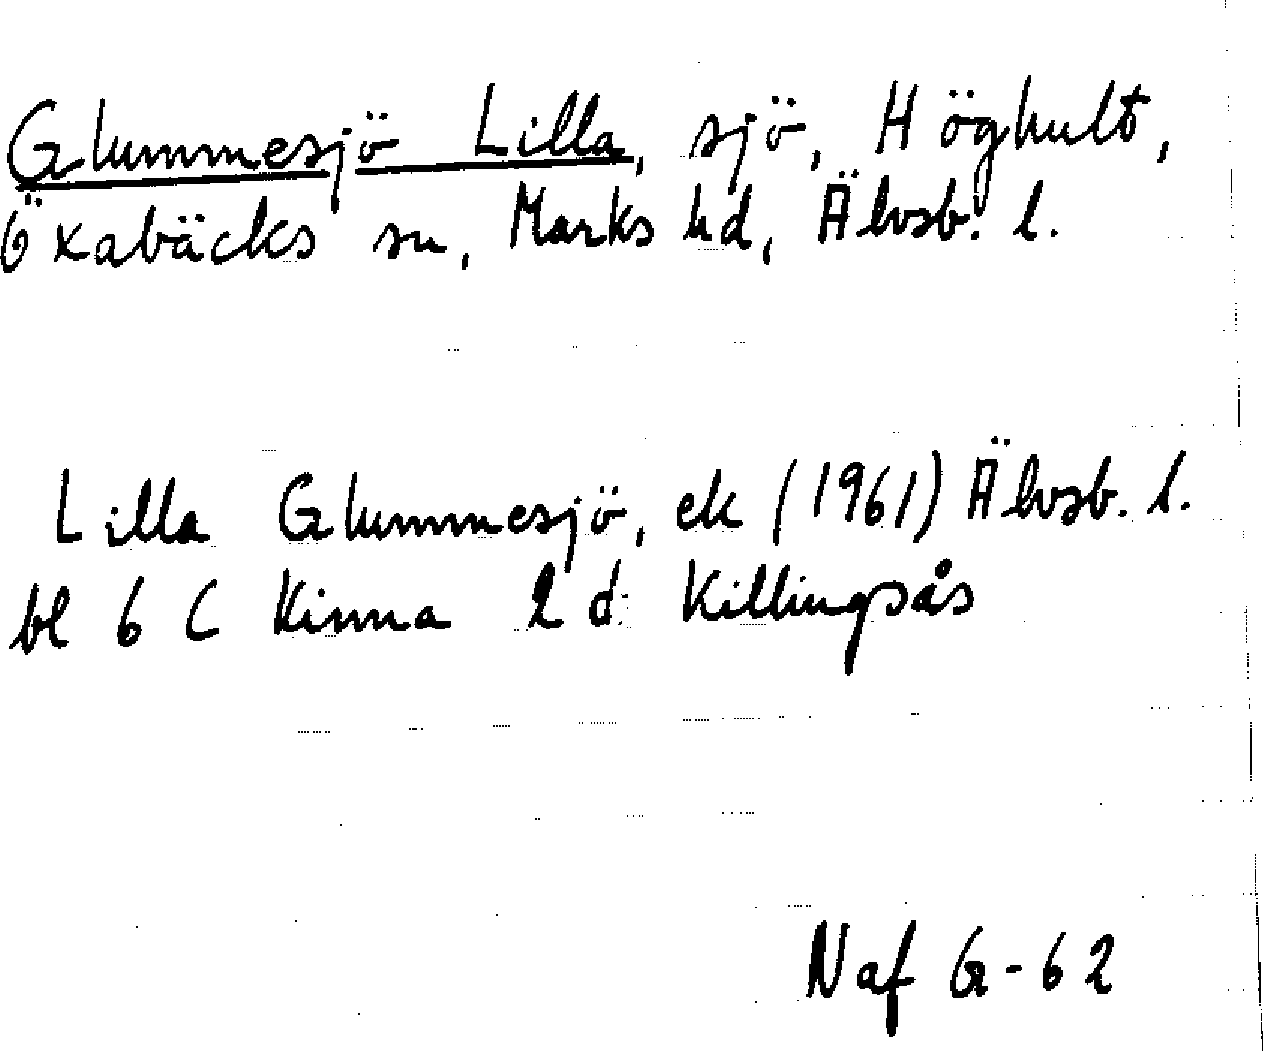 Glummesjö Lilla, sjö, Höghult,
Öxabäcks sn, Marks hd, Älvsb. l.
Lilla Glummesjö, ek (1961) Älvsb. l.
bl 6 C Kinna 2 d Killingsås
Naf G-62